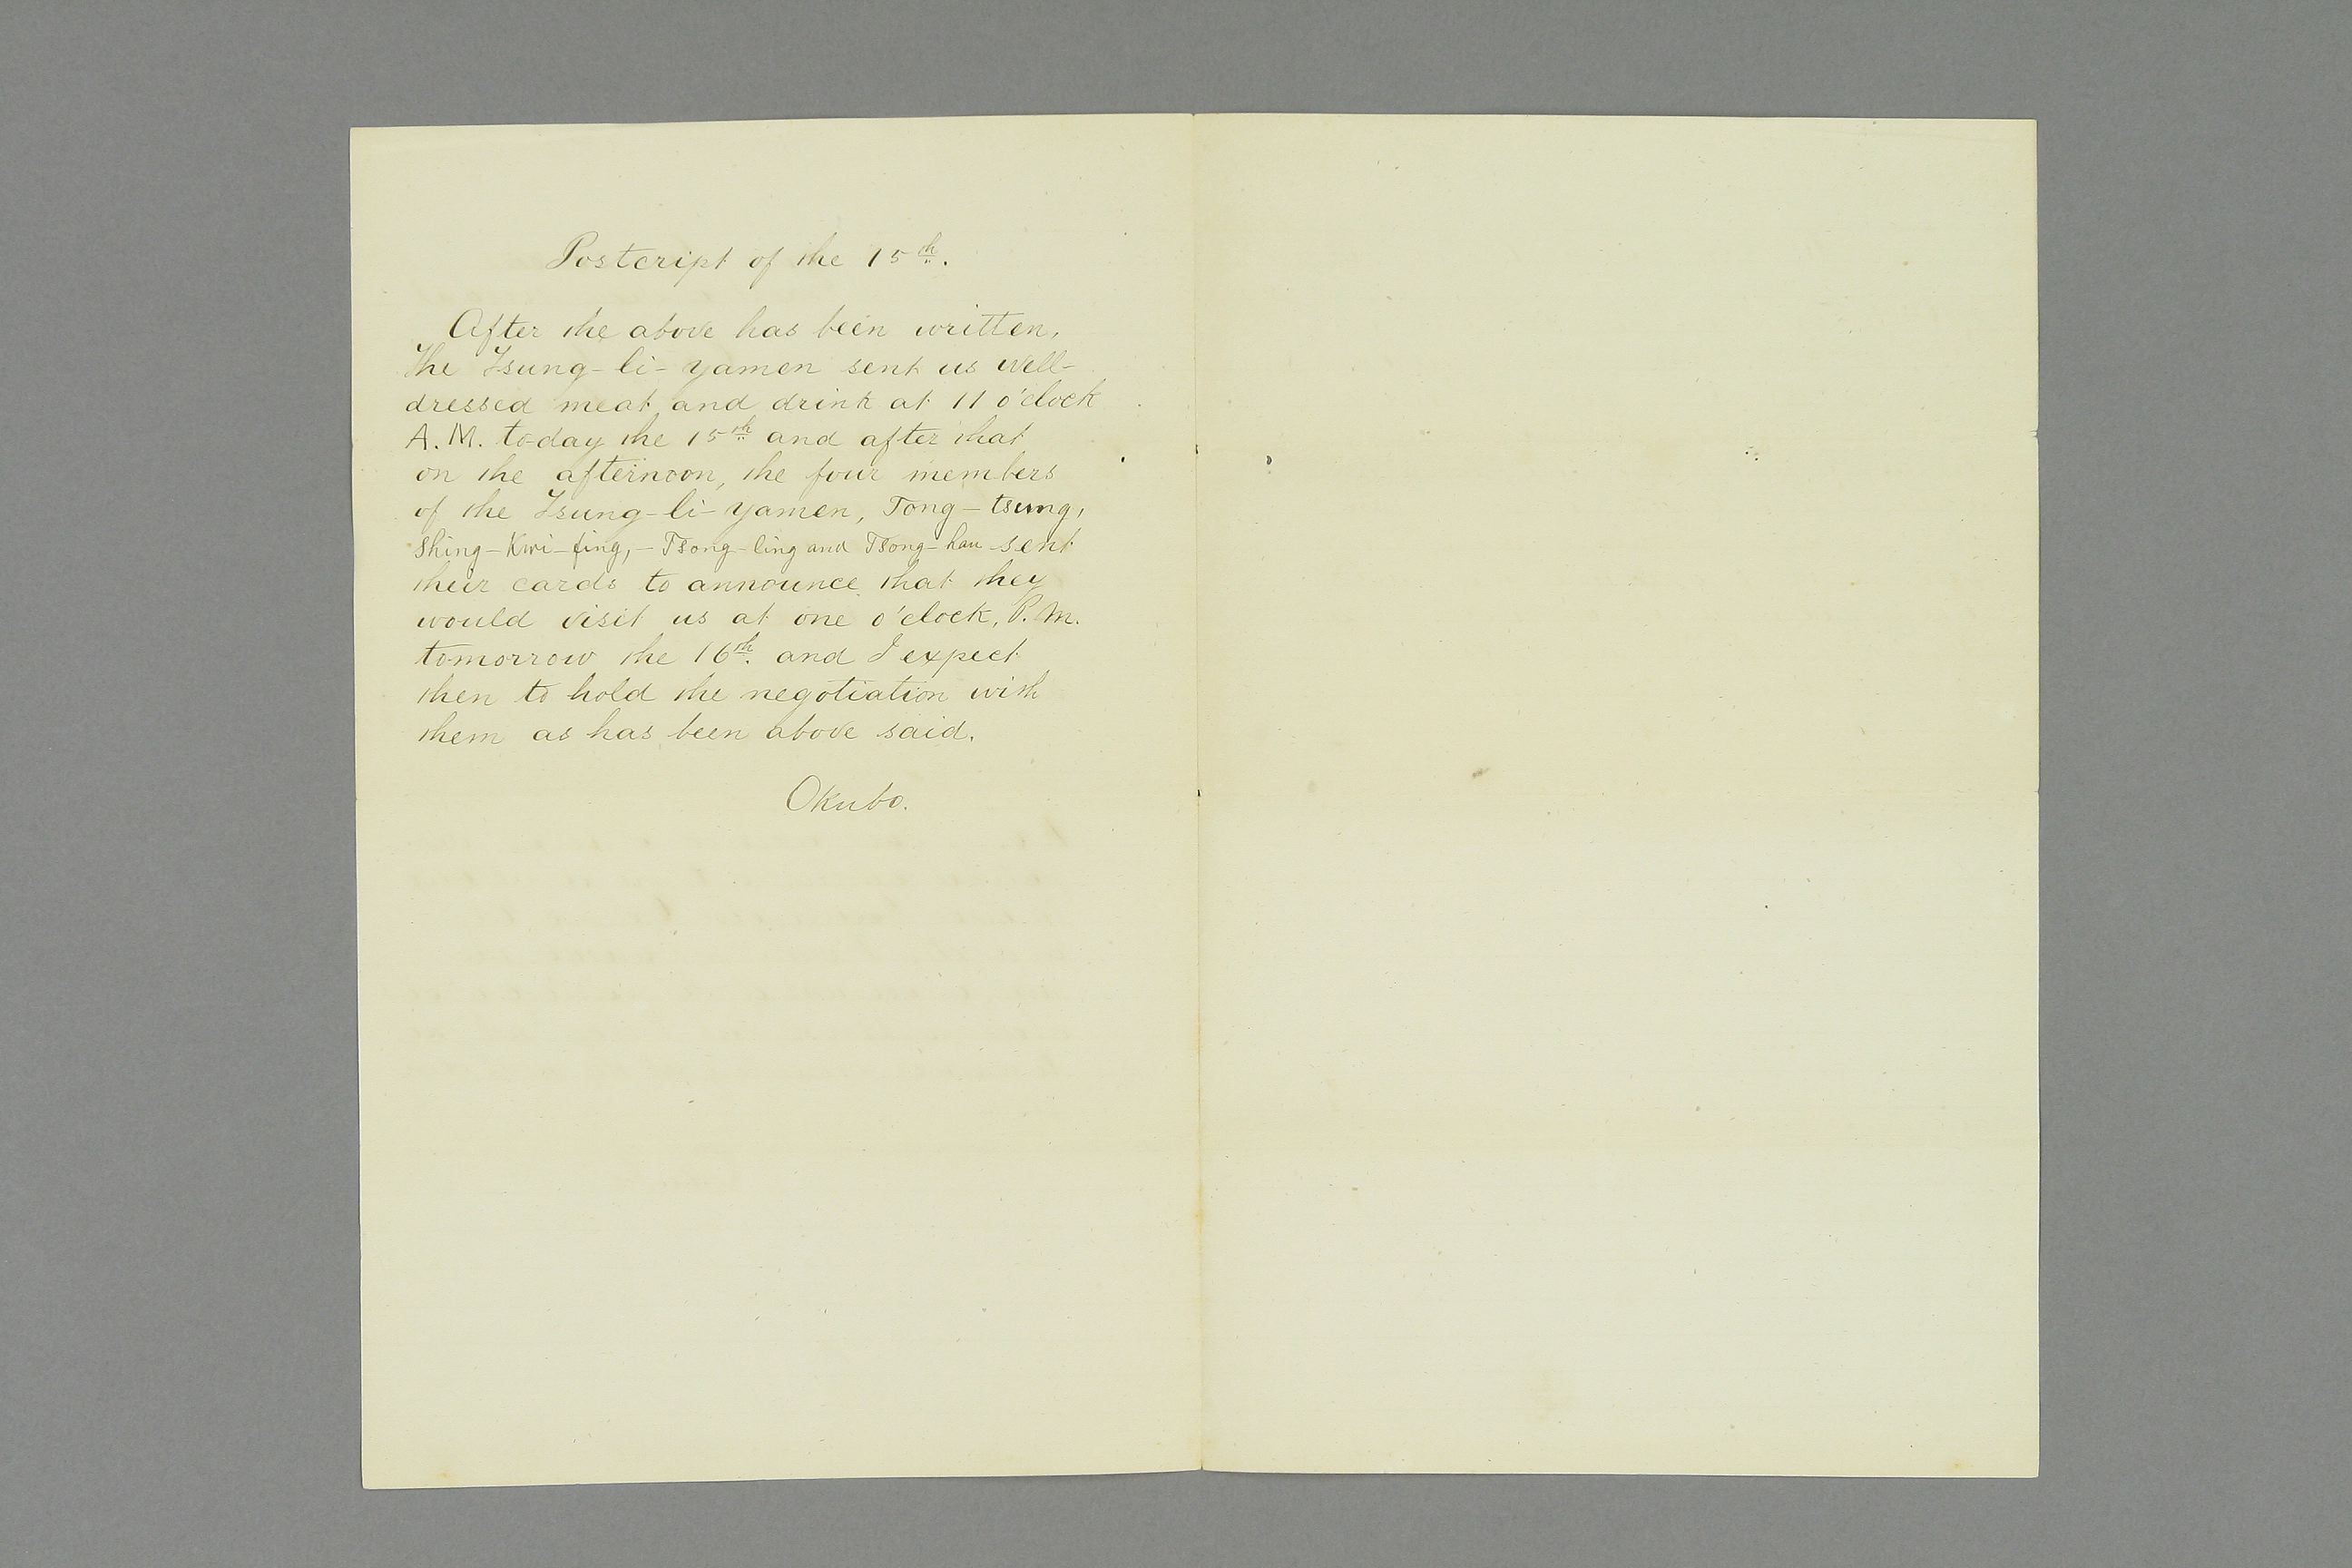 Postcript of the 15th.
After the above has been written,
The Tsung-li-yamen sent us well-
dressed meat and drink at 11 o'clock
A.M. to-day the 15th and after that
on the afternoon, the four members
of the Tsung-li-yamen, Tong-tsung,
Shing-Kwi-fing,-Tsong-ling and Tsong-hau sent
their cards to announce that they
would visit us at one o'clock, P.M.
tomorrow the 16th. and I expect
then to hold the negotiation with
them as has been above said.
Okubo.